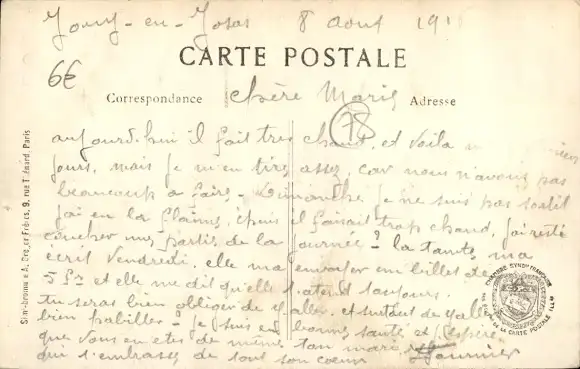 Jouy-en-Josas 8 aout 191
CARTE POSTALE
6€
Correspondance
Chère Marie
Adresse
78
aujourd'hui il fait tres chaud, et voila
jours, mais je m'en tire assez, car nous n'avons pas
beaucoup a faire - Dimanche je ne suis pas sortit
j'ai eu la flaime, puis il faisait trop chaud, j'ai resté
coucher une partie de la journée - la tante, ma
écrit Vendredi, elle ma envoyer un billet de
5 Frs et elle me dit qu'elle t'atend toujours,
tu seras bien obliger de y aller, et surtout de
bien babiller - je suis en bonne santé et j'espère
que vous en etes de même ton mari
qui t'embrasse de tout son coeur Fournier
CHAMBRE SYND. FRANÇAISE
DE LA CARTE POSTALE ILL.
9, rue Tiénard, Paris